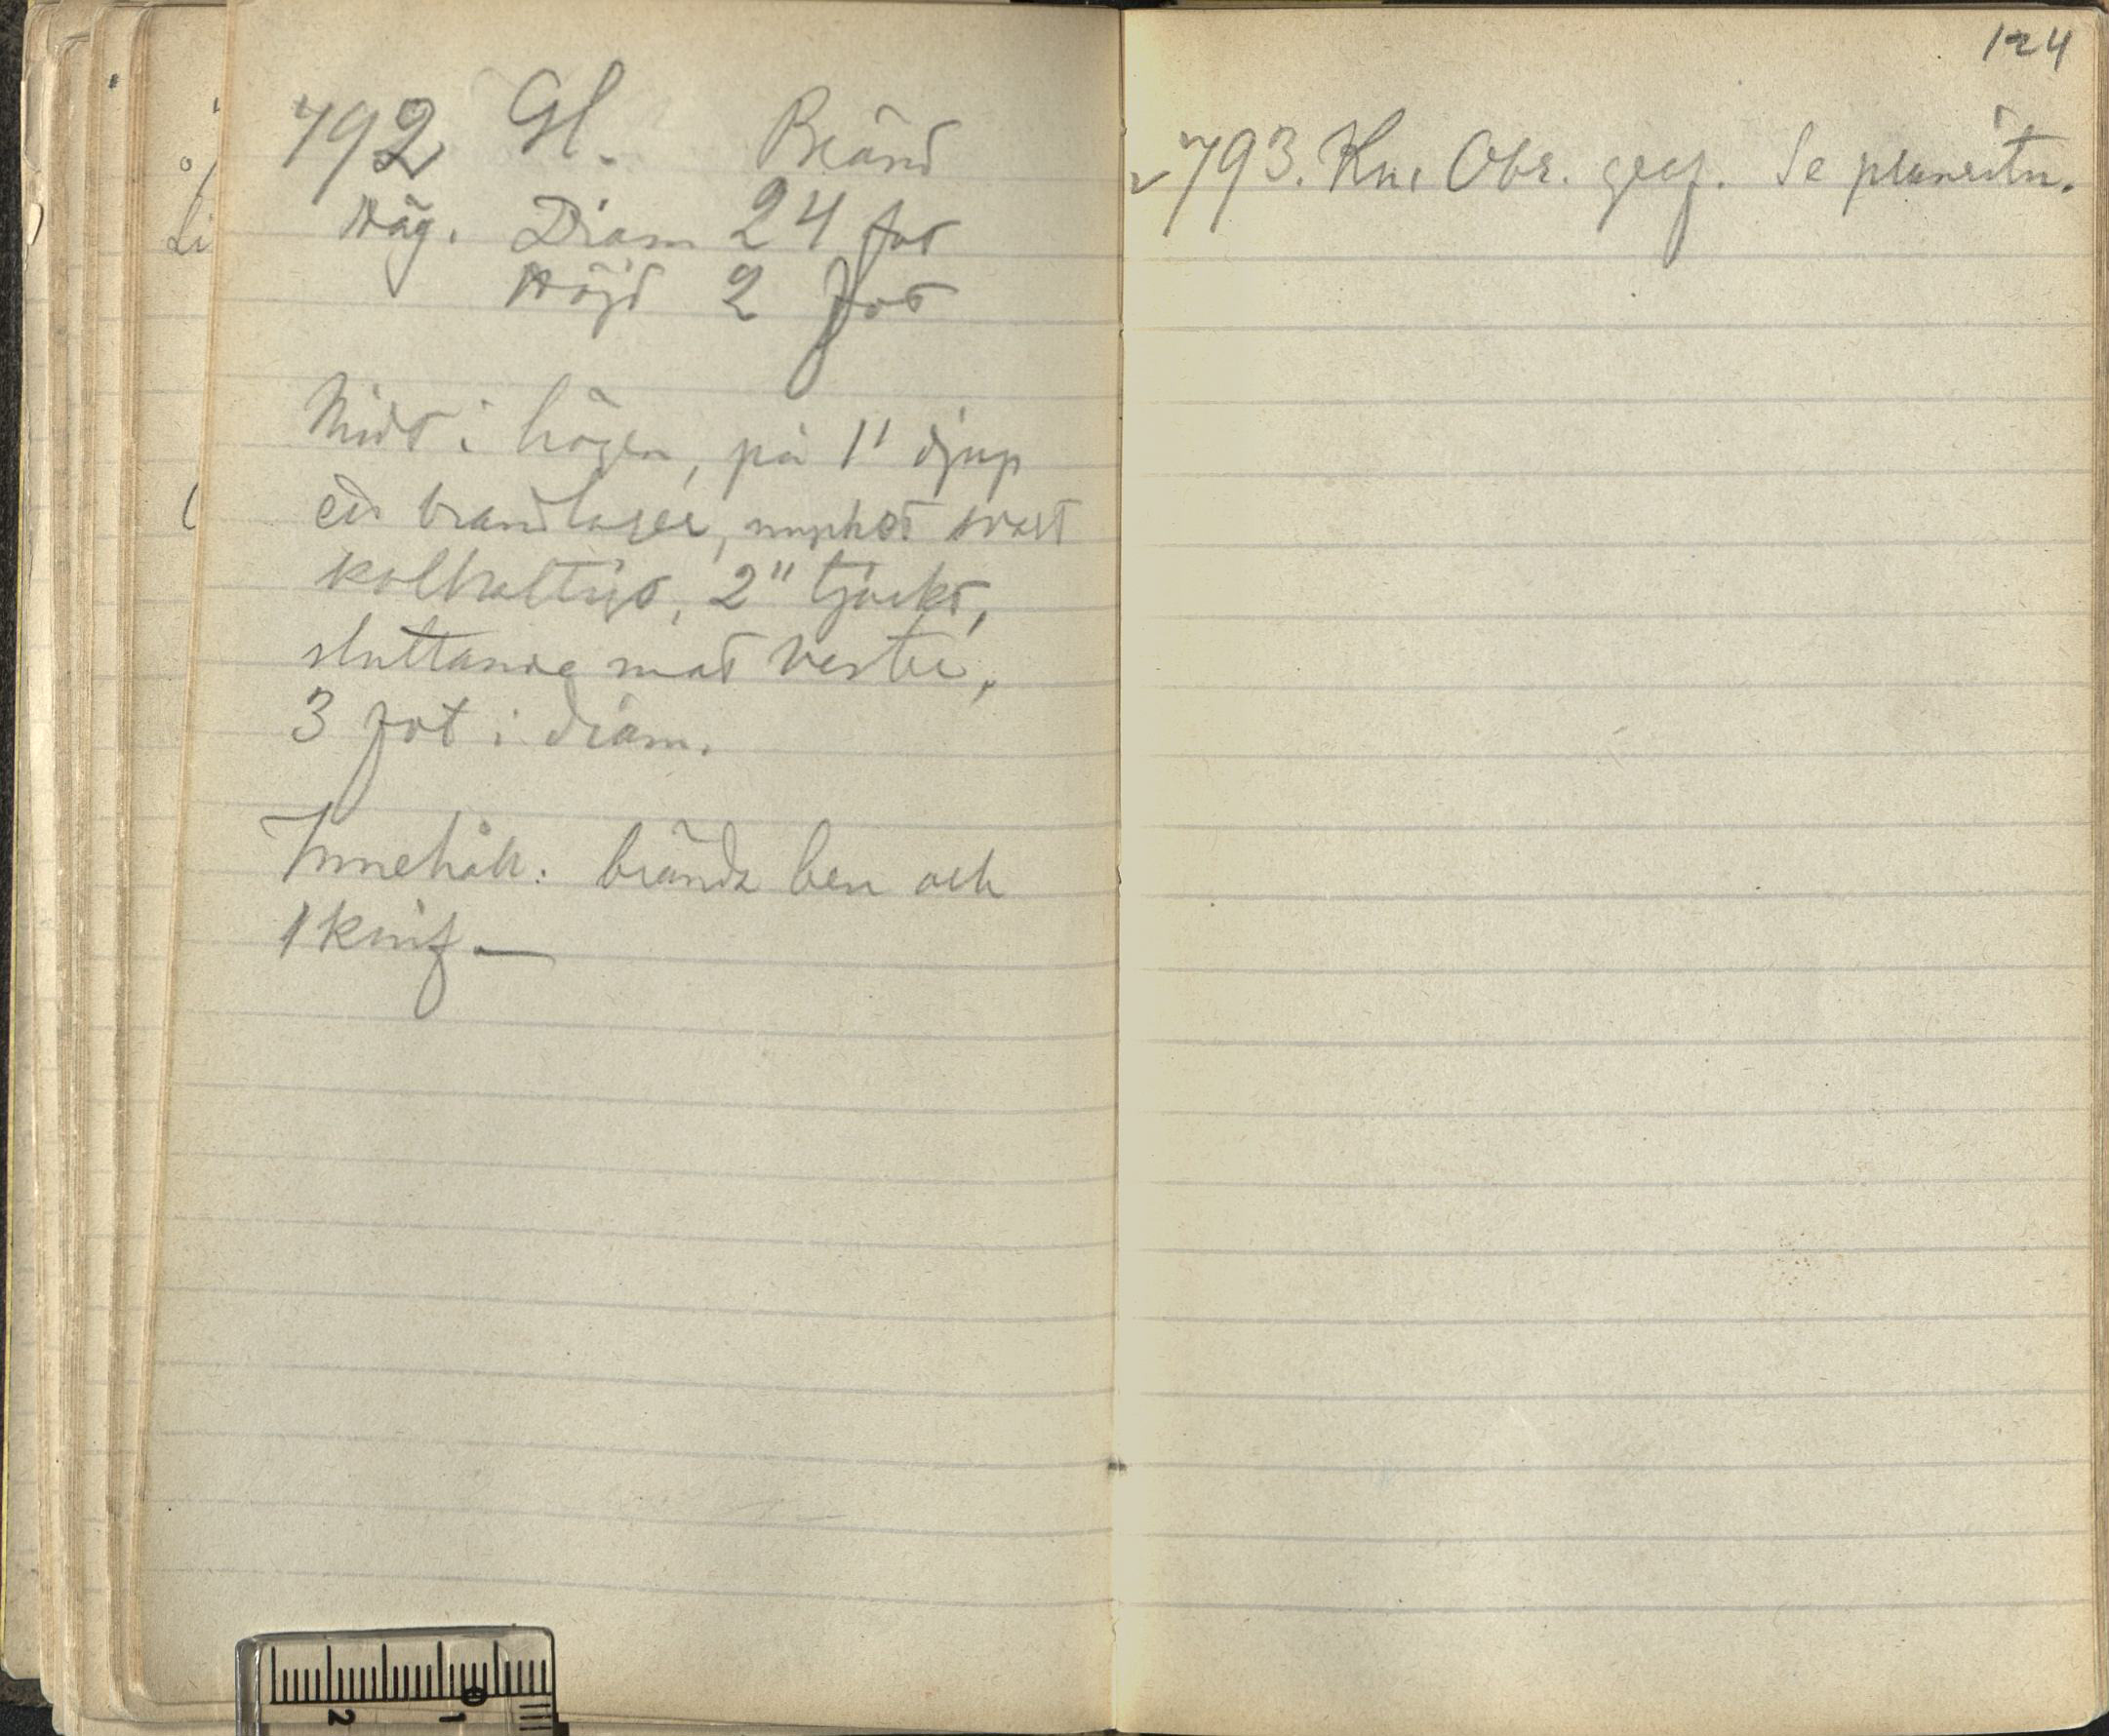 792 Gl. Bränd
Hög. Diam 24 fot
Höjd 2 fot
Midt i högen, på 1' djup
ett brandlager, mycket svart
kolhaltigt, 2" tjockt,
sluttande mot vester,
3 fot i diam.
Innehåll: brända ben och
1 knif —
124
793. Kn. Obr. graf. Se planritn.
Li
2
1
0